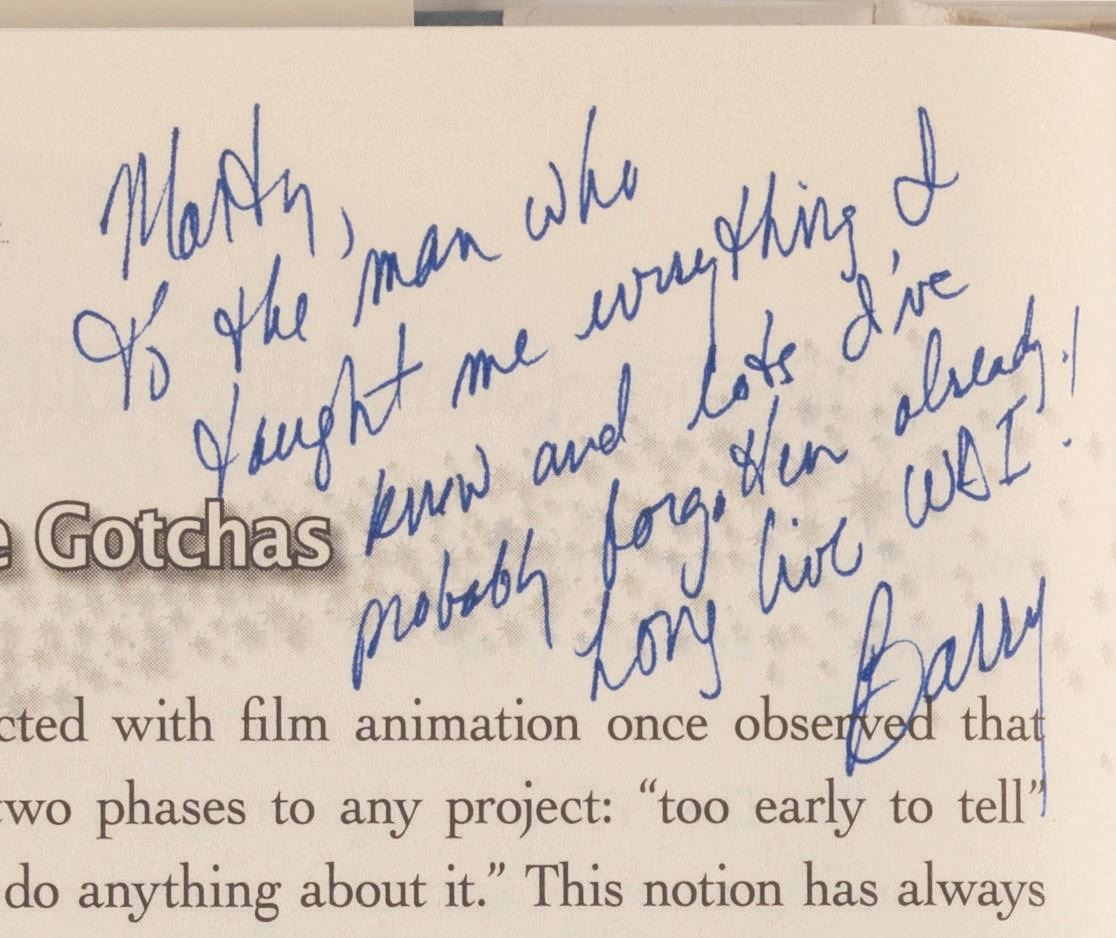 Marty,
To the man who
taught me everything I
know and lots I've
probably forgotten already!
Long live WDI!
Barry
e Gotchas
cted with film animation once observed that
two phases to any project: “too early to tell”
do anything about it.” This notion has always